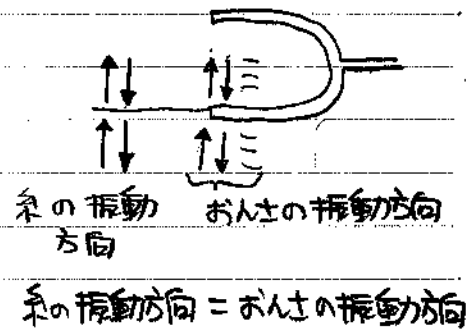 糸の振動
方向
おんさの振動方向
糸の振動方向 = おんさの振動方向